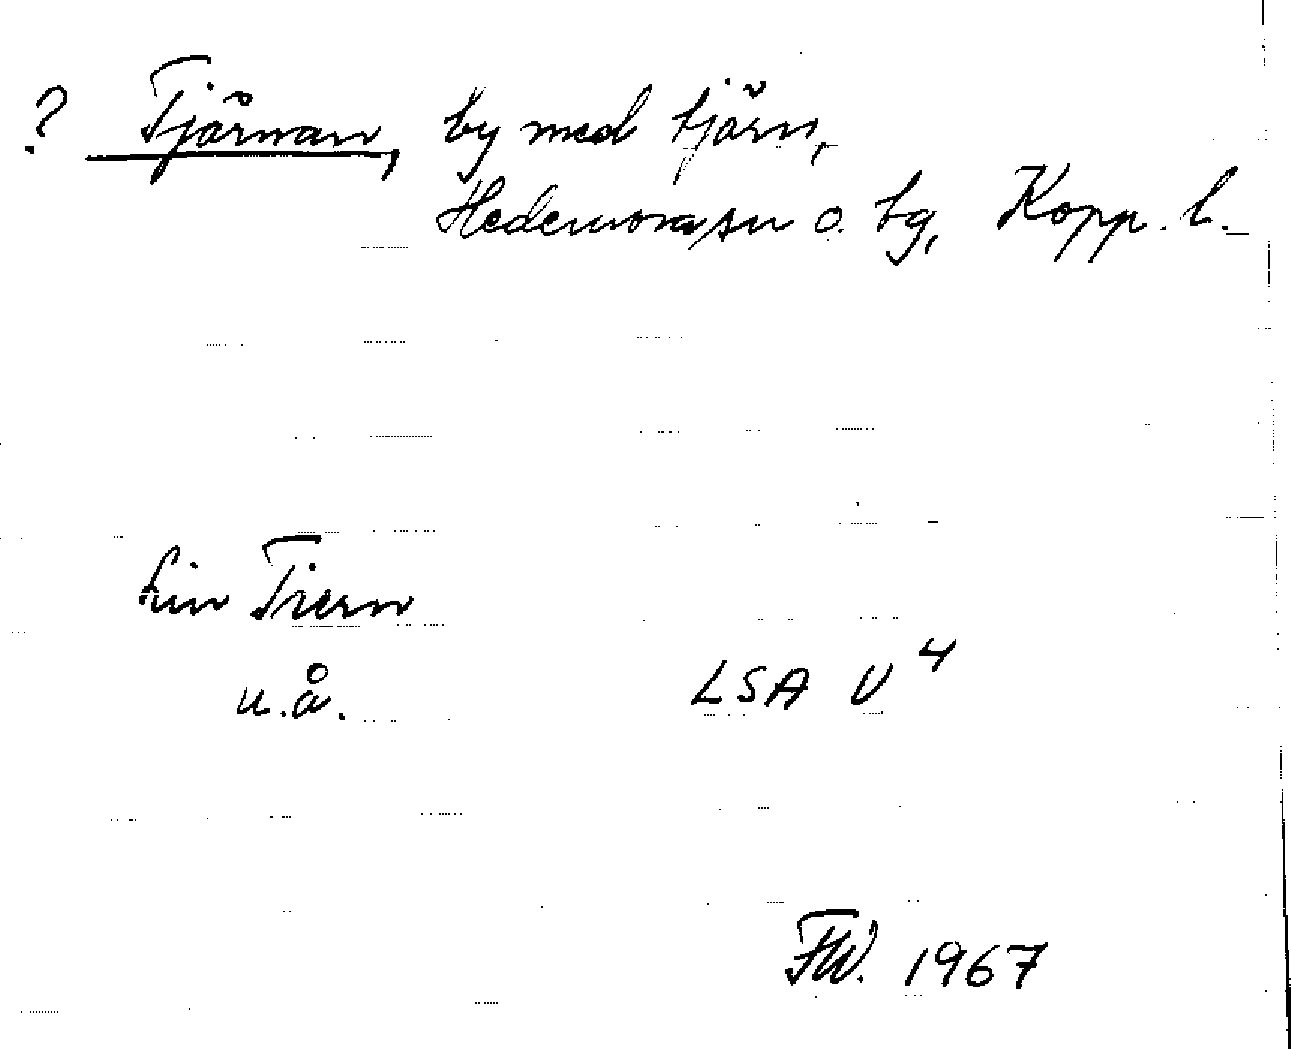 ? Tjärnan, by med tjärn,
Hedemora sn o. tg, Kopp. l.
Lin Tiern
u.å. LSA V 4
FW. 1967